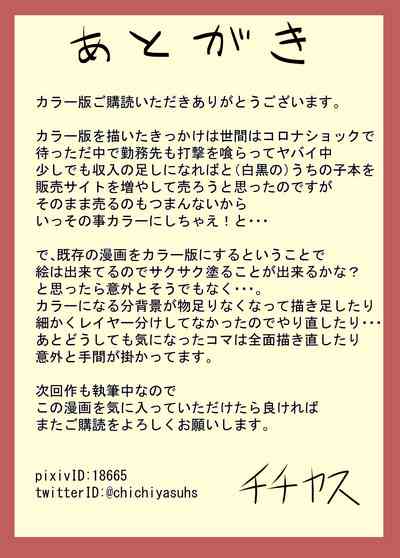 あとがき
カラー版ご購読いただきありがとうございます。
カラー版を描いたきっかけは世間はコロナショックで
待っただ中で勤務先も打撃を喰らってヤバイ中
少しでも収入の足しになればと(白黒の)うちの子本を
販売サイトを増やして売ろうと思ったのですが
そのまま売るのもつまんないから
いっその事カラーにしちゃえ！と･･･
で、既存の漫画をカラー版にするということで
絵は出来てるのでサクサク塗ることが出来るかな？
と思ったら意外とそうでもなく･･･。
カラーになる分背景が物足りなくなって描き足したり
細かくレイヤー分けしてなかったのでやり直したり･･･
あとどうしても気になったコマは全面描き直したり
意外と手間が掛かってます。
次回作も執筆中なので
この漫画を気に入っていただけたら良ければ
またご購読をよろしくお願いします。
pixivID:18665
twitterID:@chichiyasuhs
チチヤス